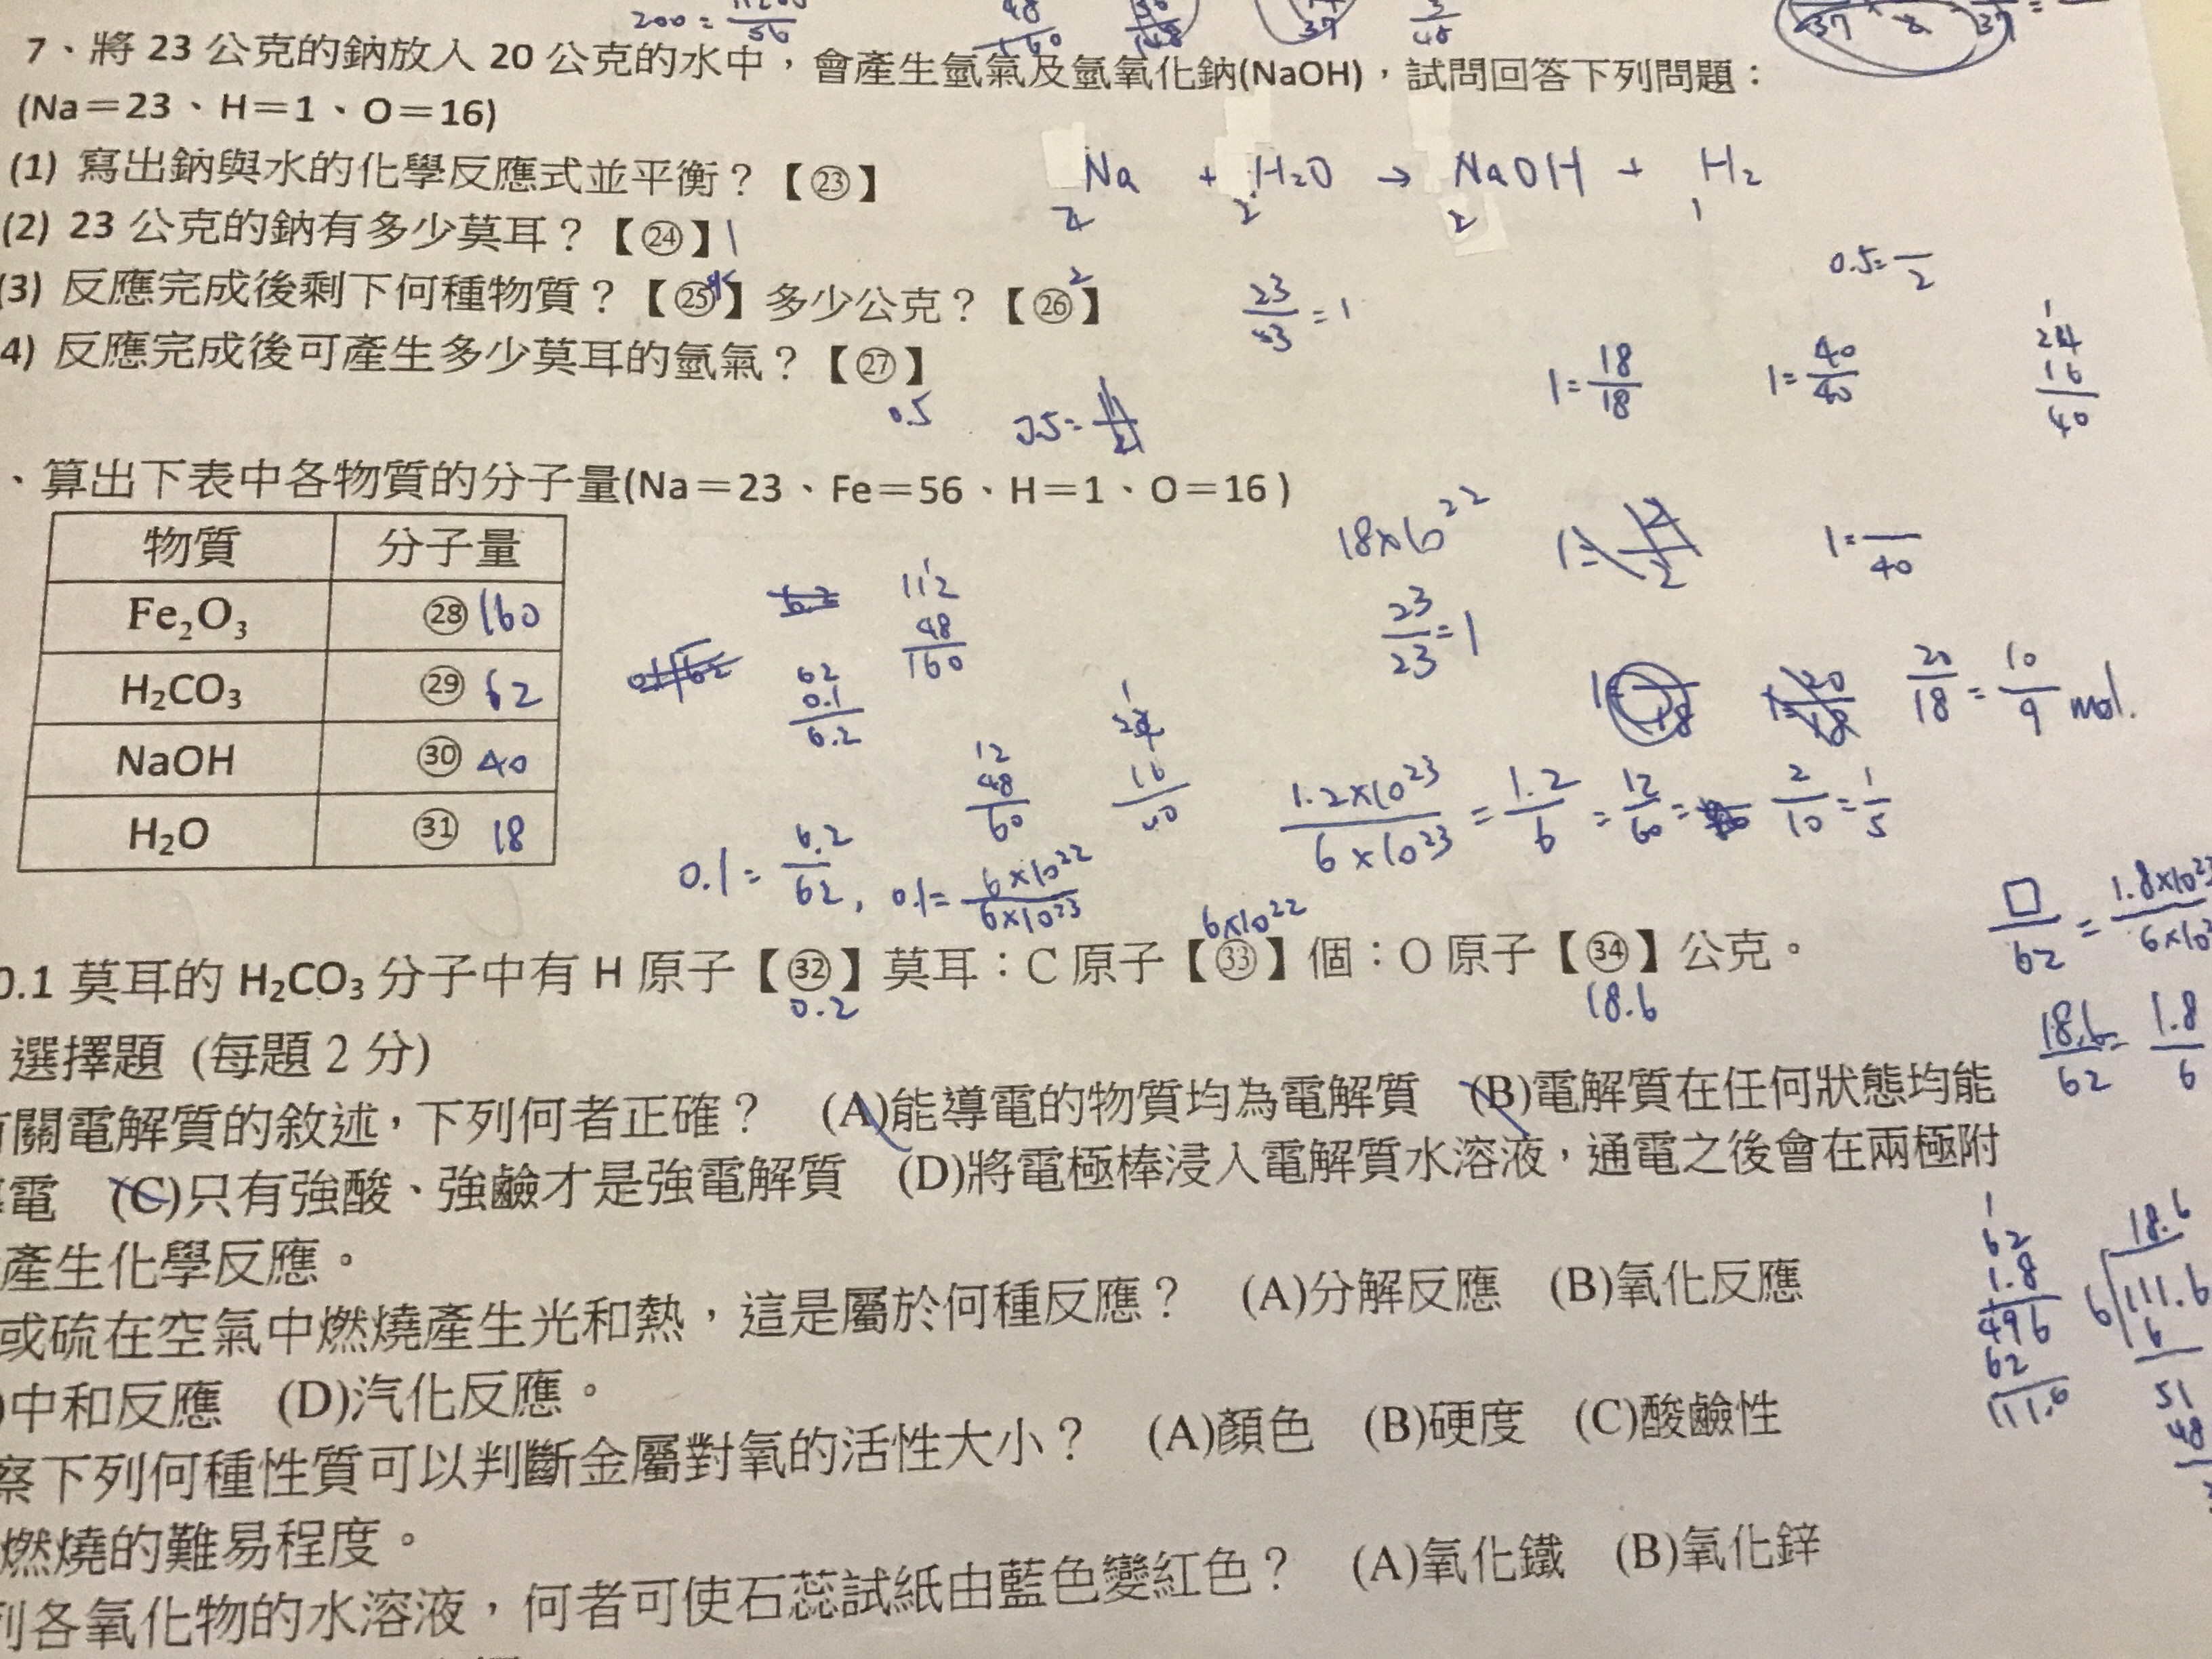 200 = 56
7、將 23 公克的鈉放入 20 公克的水中，會產生氫氣及氫氧化鈉(NaOH)，試問回答下列問題：
(Na＝23、H＝1、O＝16)
(1) 寫出鈉與水的化學反應式並平衡？【㉓】
2Na + 2H2O → 2NaOH + 1H2
(2) 23 公克的鈉有多少莫耳？【㉔】1
(3) 反應完成後剩下何種物質？【㉕】多少公克？【㉖】2
23/23 = 1
0.5 = /2
4) 反應完成後可產生多少莫耳的氫氣？【㉗】
0.5
1 = 18/18
1 = 40/40
24
16
40
、算出下表中各物質的分子量(Na＝23、Fe＝56、H＝1、O＝16 )
物質 分子量
Fe₂O₃ ㉘ 160
H₂CO₃ ㉙ 62
NaOH ㉚ 40
H₂O ㉛ 18
112
48
160
62
0.1
6.2
12
48
60
18×6²²
1 = /40
23/23 = 1
20/18 = 10/9 mol.
1.2×10²³/6×10²³ = 1.2/6 = 12/60 = 2/10 = 1/5
0.1 = 6.2/62, 0.1 = 6×10²²/6×10²³
□/62 = 1.8×10²³/6×10
6×10²²
0.1 莫耳的 H₂CO₃ 分子中有 H 原子【㉜】莫耳：C 原子【㉝】個：O 原子【㉞】公克。
0.2 18.6
18.6/62 = 1.8/6
選擇題 (每題 2 分)
關電解質的敘述，下列何者正確？ (A)能導電的物質均為電解質 (B)電解質在任何狀態均能
電 (C)只有強酸、強鹼才是強電解質 (D)將電極棒浸入電解質水溶液，通電之後會在兩極附
產生化學反應。
62
1.8
496
62
111.6
18.6
6 111.6
6
51
48
或硫在空氣中燃燒產生光和熱，這是屬於何種反應？ (A)分解反應 (B)氧化反應
)中和反應 (D)汽化反應。
察下列何種性質可以判斷金屬對氧的活性大小？ (A)顏色 (B)硬度 (C)酸鹼性
燃燒的難易程度。
列各氧化物的水溶液，何者可使石蕊試紙由藍色變紅色？ (A)氧化鐵 (B)氧化鋅